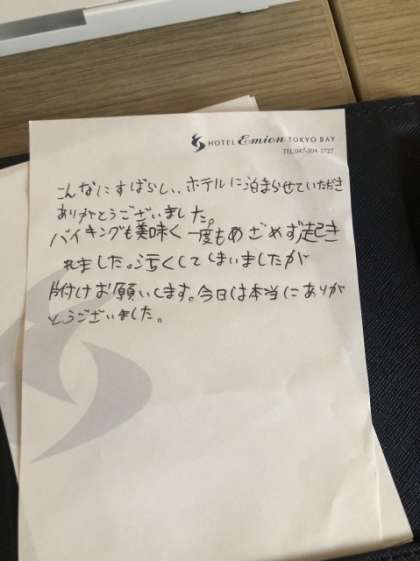 HOTEL Emion TOKYO BAY
こんなにすばらしいホテルに泊まらせていただき
ありがとうございました。
バイキングも美味く一度もめざめず起き
れました。汚くしてしまいましたが
片付けお願いします。今日は本当にありが
とうございました。